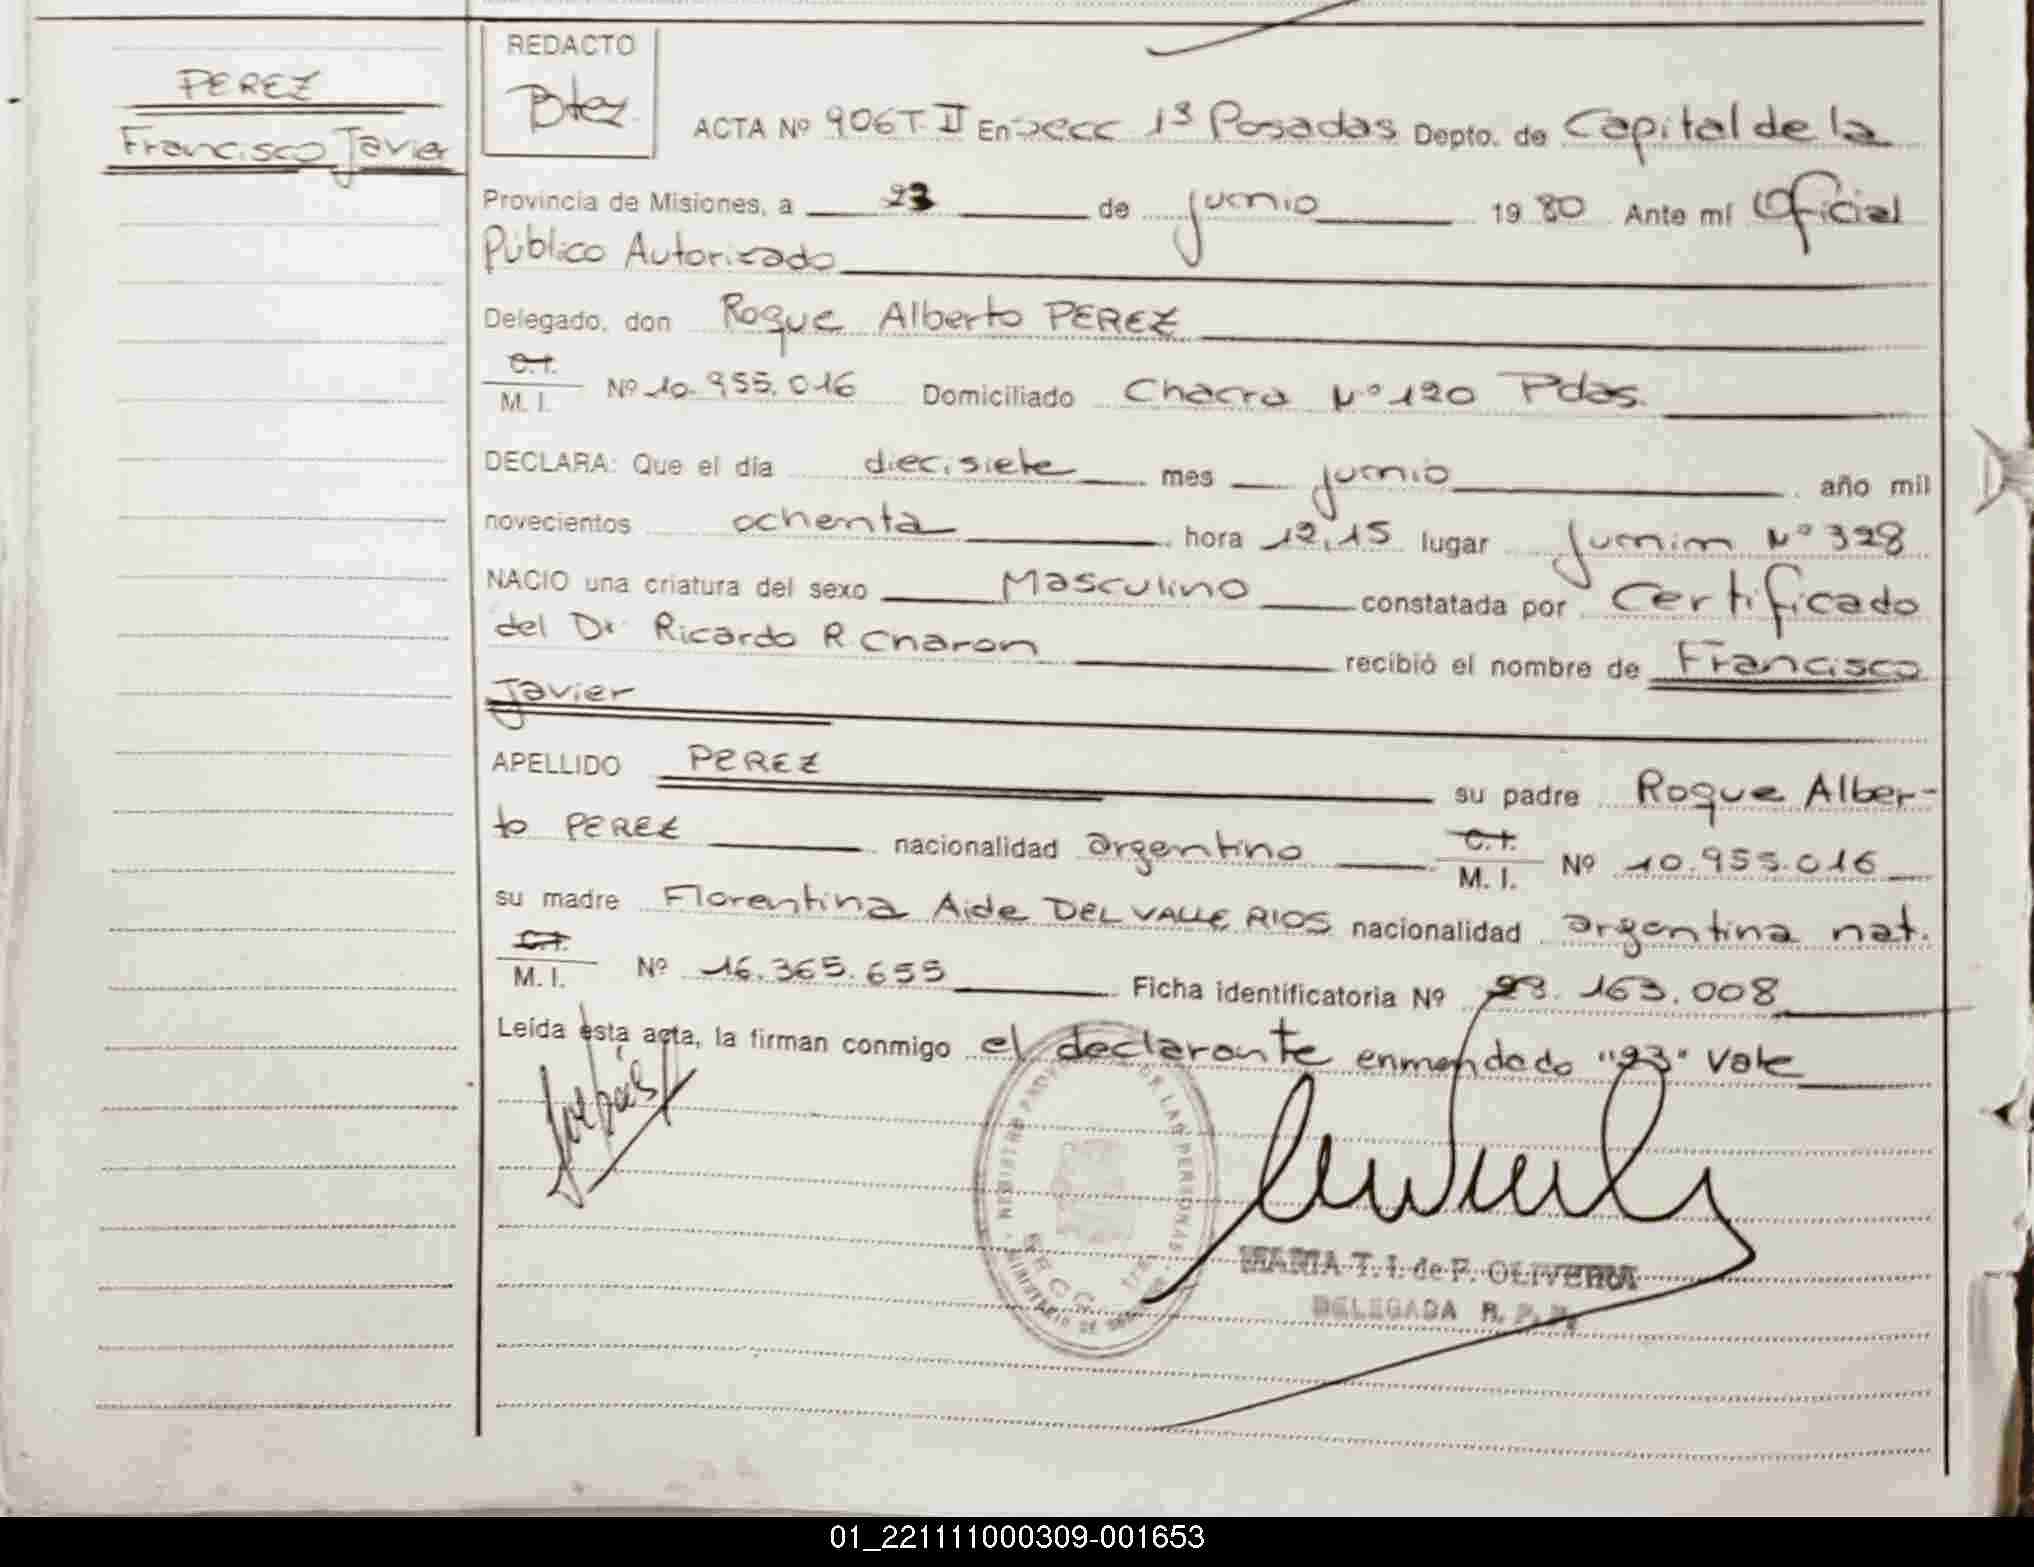 PEREZ
Francisco Javier
REDACTO
Btez
ACTA Nº 906 T. II En secc 1ª Posadas Depto. de Capital de la
Provincia de Misiones, a 23 de junio 19 80 Ante mí Oficial
Público Autorizado
Delegado, don Roque Alberto PEREZ
C.I.
M. I. Nº 10.955.016 Domiciliado Chacra Nº 120 Pdas.
DECLARA: Que el día diecisiete mes junio año mil
novecientos ochenta hora 12,15 lugar Junin Nº 328
NACIO una criatura del sexo Masculino constatada por Certificado
del Dr Ricardo R Charon recibió el nombre de Francisco
Javier
APELLIDO PEREZ su padre Roque Alber-
to PEREZ nacionalidad argentino C.I. M. I. Nº 10.955.016
su madre Florentina Aide DEL VALLE RIOS nacionalidad argentina nat.
C.I.
M. I. Nº 16.365.655 Ficha identificatoria Nº 28.163.008
Leída esta acta, la firman conmigo el declarante enmendado "23" Vale
MARIA T. I. de P. OLIVEIRA
DELEGADA R. P. P.
01_221111000309-001653